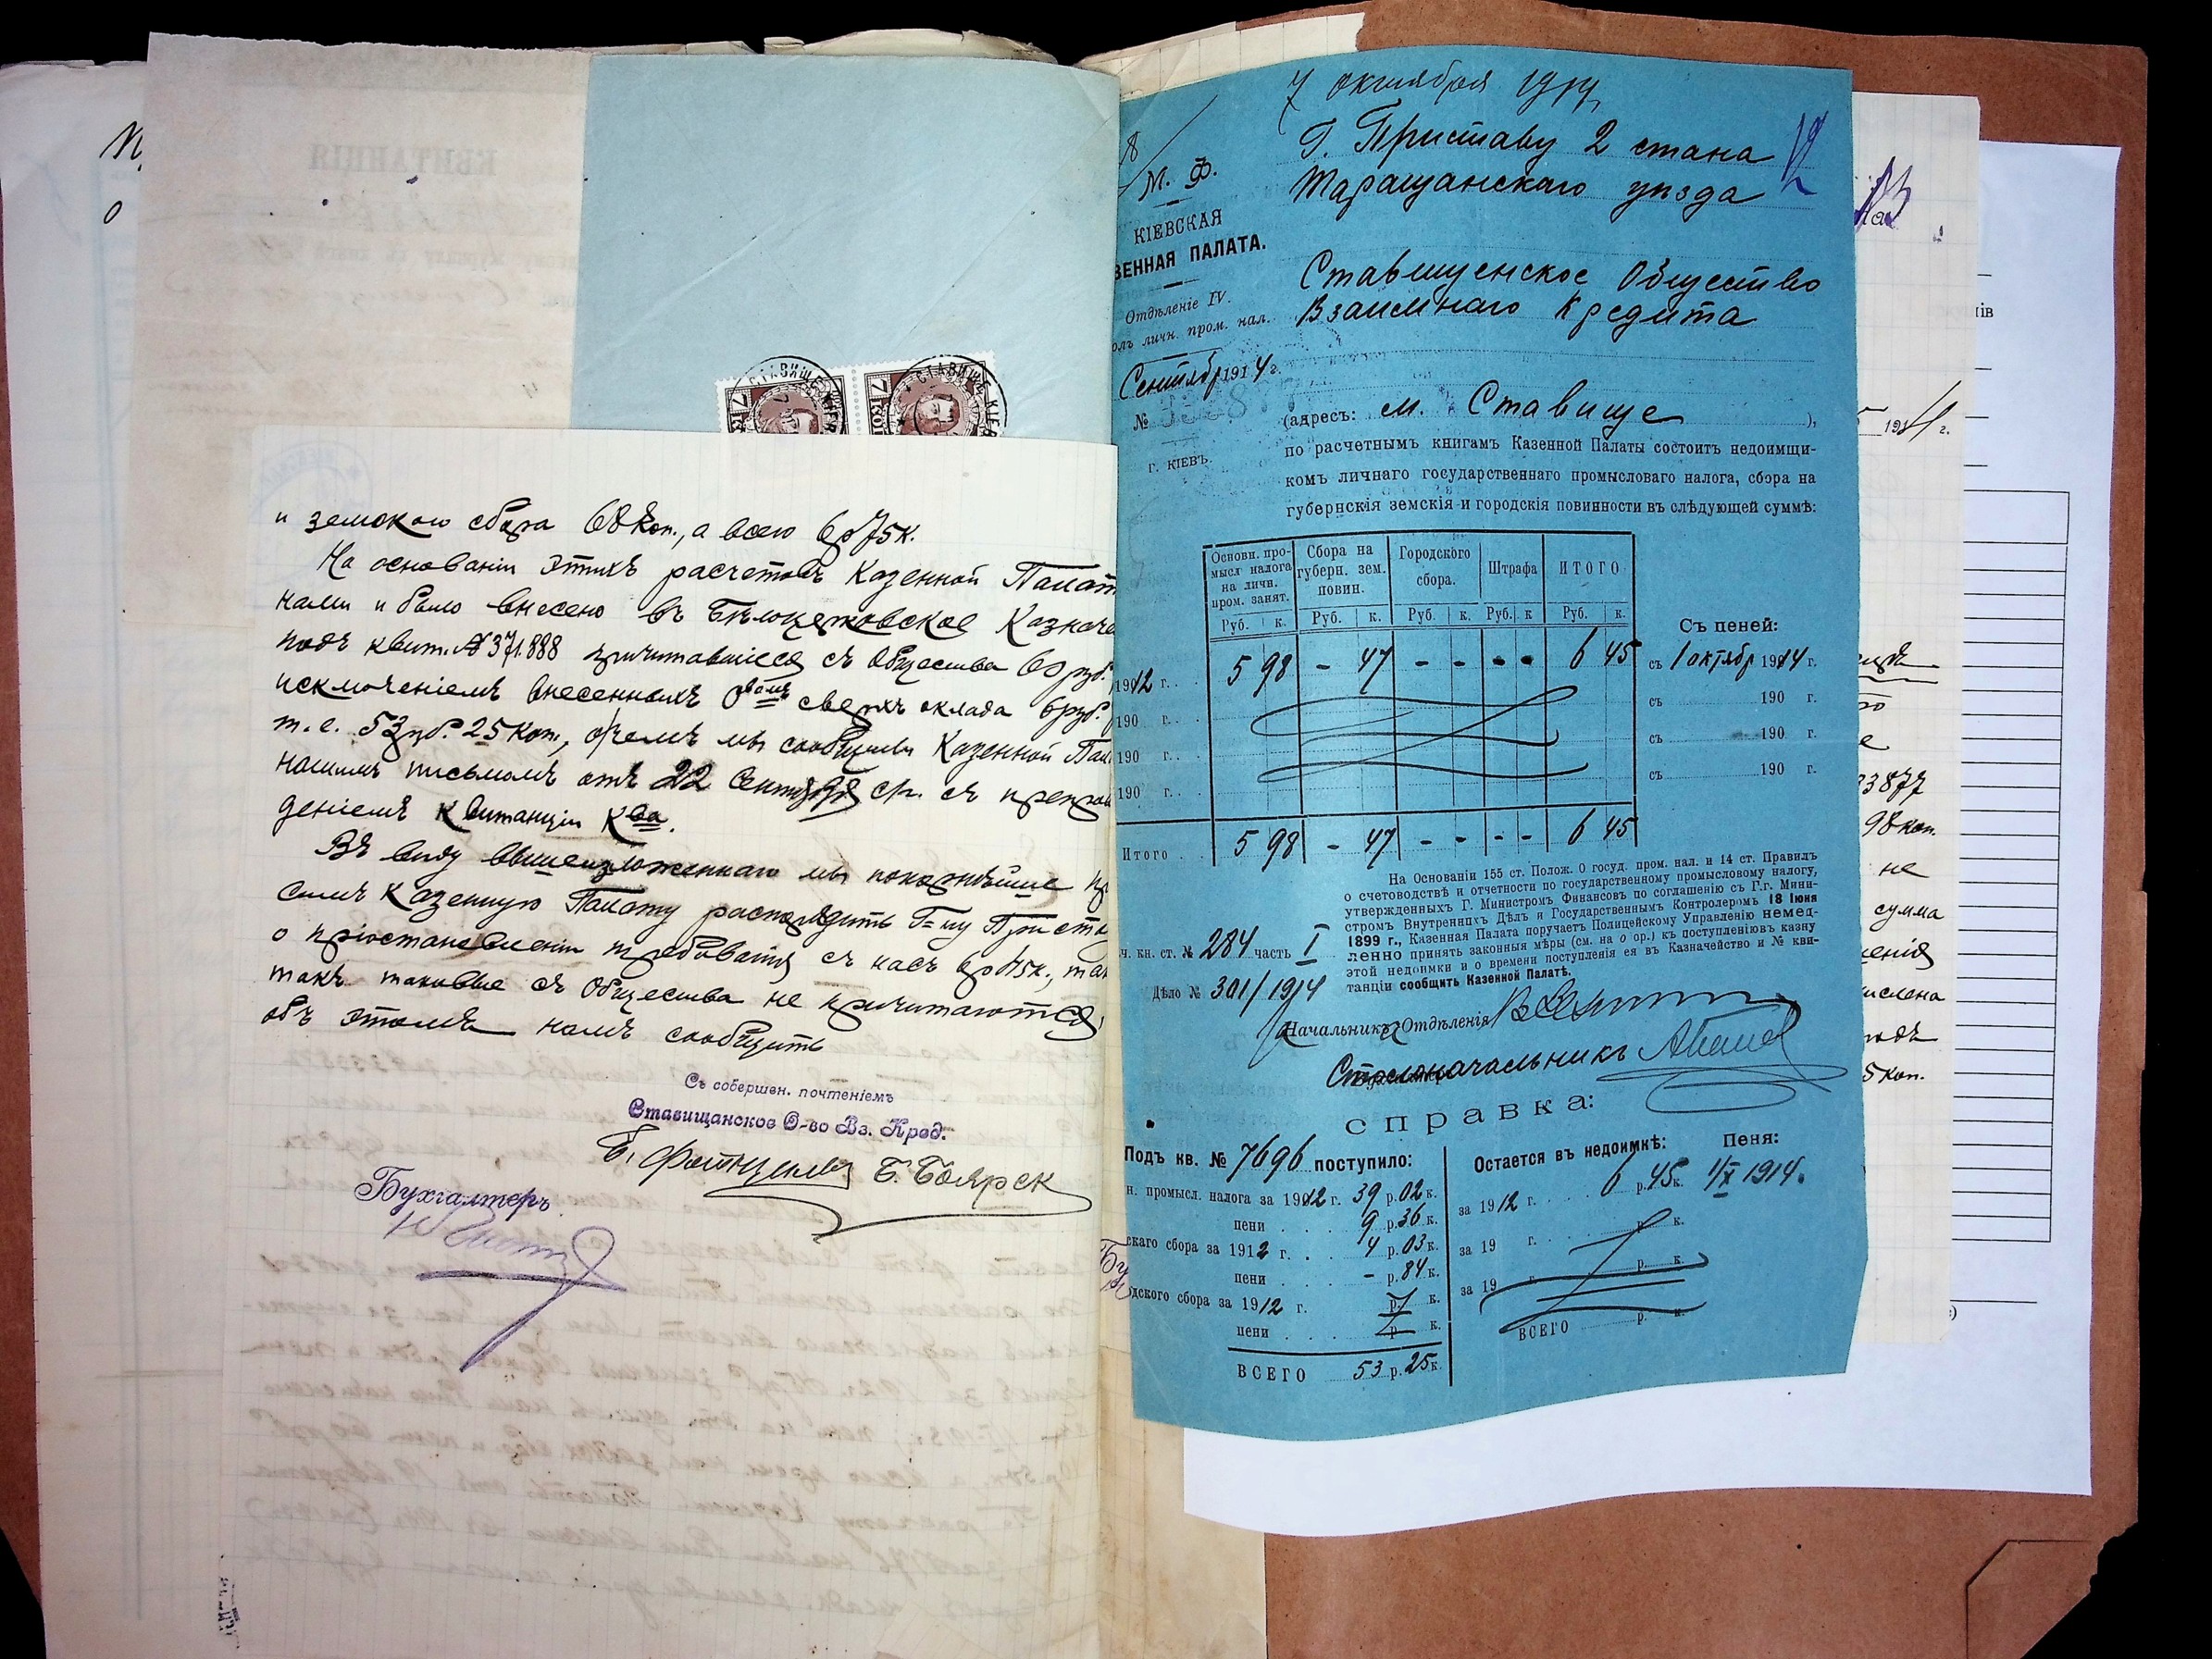 и земского сбора 68 коп., а всего 6р75к.
На основаніи этихъ расчетовъ Казенной Палат
нами и было внесено въ Бѣлоцерковское Казначе
подъ квит. № 371.888 причитавшіеся съ Общества 60 руб.
исключеніемъ внесенныхъ О-вомъ сверхъ оклада 6 руб.
т.е. 53 руб. 25 коп., о чемъ мы сообщили Казенной Пал
нашимъ письмомъ отъ 22 Сентября с/г. съ препров
деніемъ квитанціи К-ва.
Въ виду вышеизложеннаго мы покорнѣйше пр
симъ Казенную Палату распорядить Г-ну Приста
о пріостановленіи требованія съ насъ 6р45к., так
такъ таковые съ Общества не причитаются
объ этомъ намъ сообщить
Съ совершен. почтеніемъ
Ставищанское О-во Вз. Кред.
Б. Боярск
Бухгалтеръ
7 октября 1914
Г. Приставу 2 стана
Таращанскаго уѣзда
12
М. Ф.
КІЕВСКАЯ
ЗЕННАЯ ПАЛАТА.
Отдѣленіе IV.
олъ личн. пром. нал.
Сентябр 1914 г.
№
г. КІЕВЪ.
Ставищенское Общество
Взаимнаго Кредита
(адресъ: м. Ставище ),
по расчетнымъ книгамъ Казенной Палаты состоитъ недоимщи-
комъ личнаго государственнаго промысловаго налога, сбора на
губернскія земскія и городскія повинности въ слѣдующей суммѣ:
Основн. про-мысл налога на личн. пром. занят. Сбора на губерн. зем. повин. Городского сбора. Штрафа ИТОГО
Руб. к. Руб. к. Руб. к. Руб. к Руб. к.
Съ пеней:
1912 г. . 5 98 - 47 - - - - 6 45 съ 1 октябр 1914 г.
190 г. . съ 190 г.
190 г. . съ 190 г.
190 г. . съ 190 г.
Итого . . 5 98 - 47 - - - - 6 45
На Основаніи 155 ст. Полож. О госуд. пром. нал. и 14 ст. Правилъ
о счетоводствѣ и отчетности по государственному промысловому налогу,
утвержденныхъ Г. Министромъ Финансовъ по соглашенію съ Г.г. Мини-
стромъ Внутреннихъ Дѣлъ и Государственнымъ Контролеромъ 18 Іюня
1899 г., Казенная Палата поручаетъ Полицейскому Управленію немед-
ленно принять законныя мѣры (см. на о ор.) къ поступленіювъ казну
этой недоимки и о времени поступленія ея въ Казначейство и № кви-
танціи сообщить Казенной Палатѣ.
ч. кн. ст. № 284 часть I
Дѣло № 301/1914
Начальникъ Отдѣленія
Столоначальникъ
СПРАВКА:
Подъ кв. № 7696 поступило:
н. промысл. налога за 1912 г. 39 р. 02 к.
пени . . . 9 р. 36 к.
скаго сбора за 1912 г. . . 4 р. 03 к.
пени . . . - р. 84 к.
дского сбора за 1912 г. р. к.
пени . . . р. к.
ВСЕГО 53 р. 25 к.
Остается въ недоимкѣ: Пеня:
за 1912 г. . . . . 6 р. 45 к. 1/X 1914.
за 19 г. . . . . р. к.
за 19 г. . . . . р. к.
ВСЕГО р. к.
33877
98 коп.
не
сумма
ислена
5 коп.